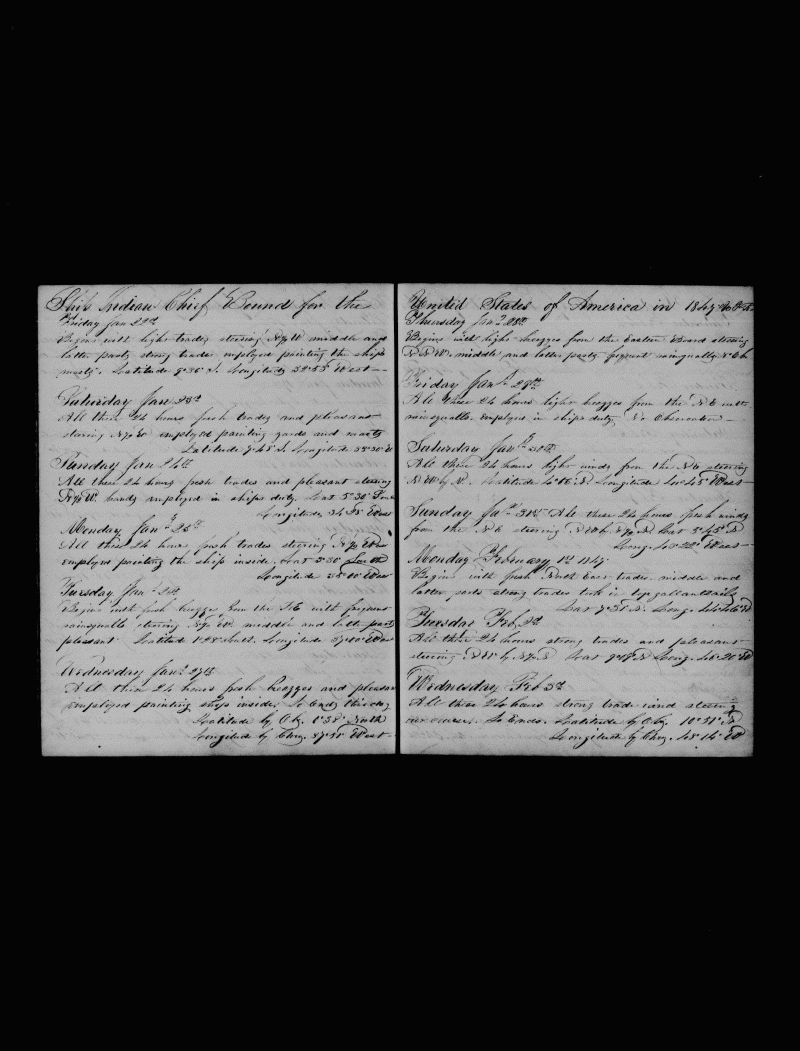 Ship Indian Chief Bound for the
Friday Jan 22nd
Begins with light trades steering N by W middle and
latter parts strong trades employed painting the ships
masts. Latitude 9°36' S. Longitude West
Saturday Jan 23rd
All these 24 hours fresh trades and pleasant
steering employed painting yards and masts
Latitude 7°48' S. Longitude
Sunday Jan 24th
All these 24 hours fresh trades and pleasant steering
N by W. hands employed in ships duty. Lat 5°30'
Longitude West
Monday Jany 25th
All these 24 hours fresh trades steering
employed painting the ship inside. Lat
Longitude West
Tuesday Jany 26th
Begins with fresh breezes from the with frequent
rainsqualls steering middle and latter parts
pleasant Latitude South. Longitude West
Wednesday Jany 27th
All these 24 hours fresh breezes and pleasant
employed painting ships inside. So Ends this day
Latitude by Obs. 0°38' North
Longitude by Chro. 37°51' West
United States of America in 1847
Thursday Jany 28th
Begins with light breezes from the Eastern Board steering
N N W. middle and latter parts frequent rainsqualls
Friday Jany 29th
All these 24 hours light breezes from the N E with
rainsqualls employed in ships duty, No Observation
Saturday Jany 30th
All these 24 hours light winds from the N E steering
N W by N. Latitude N Longitude West
Sunday Jany 31st All these 24 hours fresh winds
from the N E steering Lat 5°45' N
Long. West
Monday February 1st 1847
Begins with fresh North East trades middle and
latter parts strong trades took in topgallantsails
Lat 7°31' N. Long. W
Tuesday Feb. 2nd
All these 24 hours strong trades and pleasant
steering Lat N Long. W
Wednesday Feb 3rd
All these 24 hours strong trade wind steering
our course. So Ends. Latitude by Obs. 10°51' N
Longitude by Chro. W